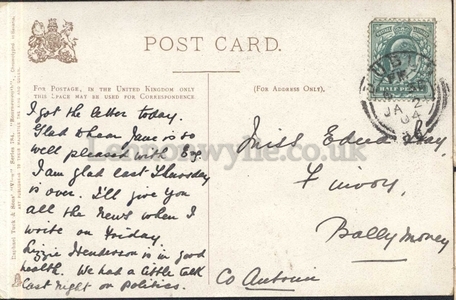 POST CARD.
FOR POSTAGE, IN THE UNITED KINGDOM ONLY
THIS SPACE MAY BE USED FOR CORRESPONDENCE
(FOR ADDRESS ONLY).
HALF PENNY
JA 2
04
Lennonwylie.co.uk
I got the letter today.
Glad to hear Jane is so
well pleased with
I am glad last Thursday
is over. I'll give you
all the news when I
write on Friday.
Lizzie Henderson is in good
health. We had a little talk
last night on Politics.
Miss Edena Hay
Finvoy
Ballymoney
Co Antrim